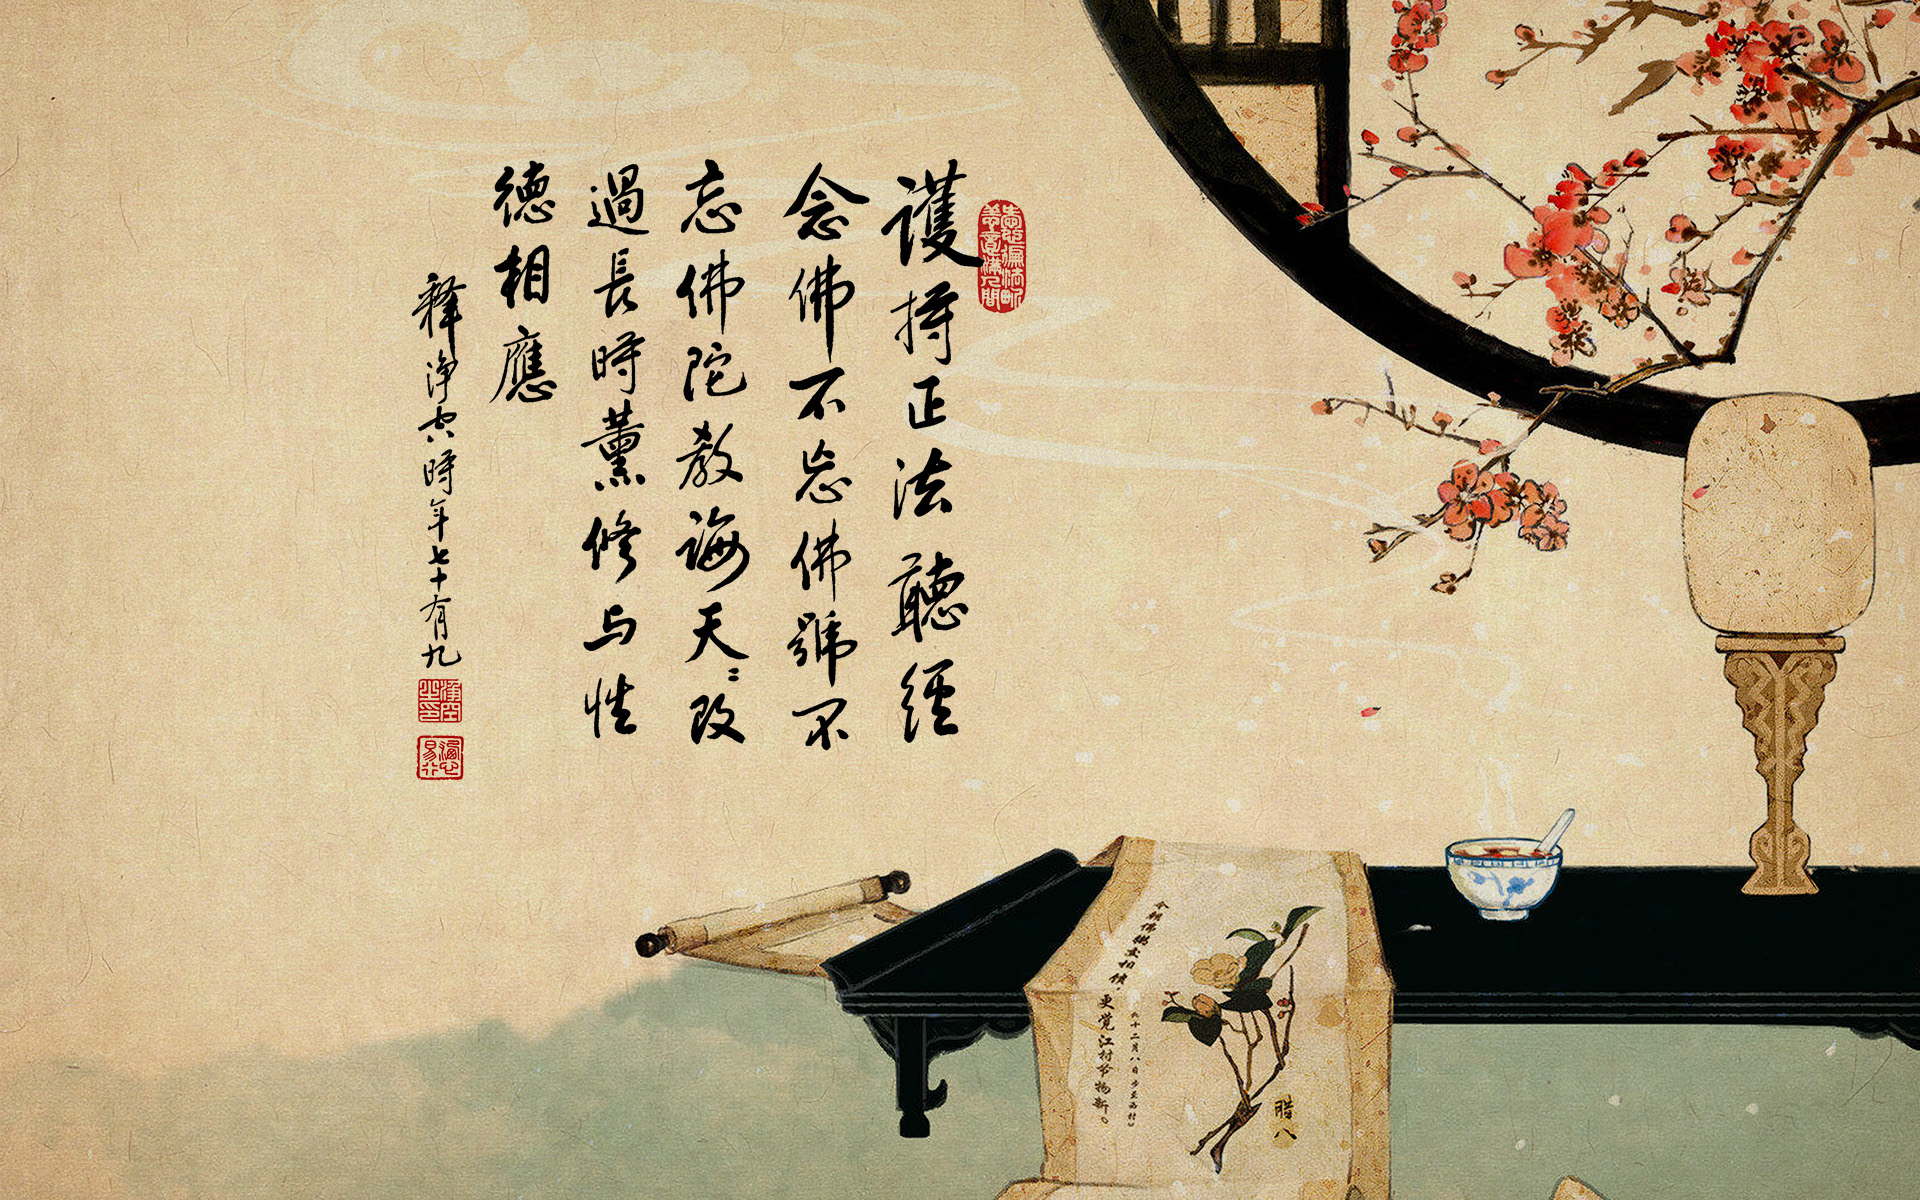 護持正法聽經
念佛不忘佛號不
忘佛陀教誨天〻改
過長時薰修与性
德相應
释淨空時年七十有九
今朝佛粥交相馈，
更觉江村节物新。
《十二月八日步至西村》
腊八